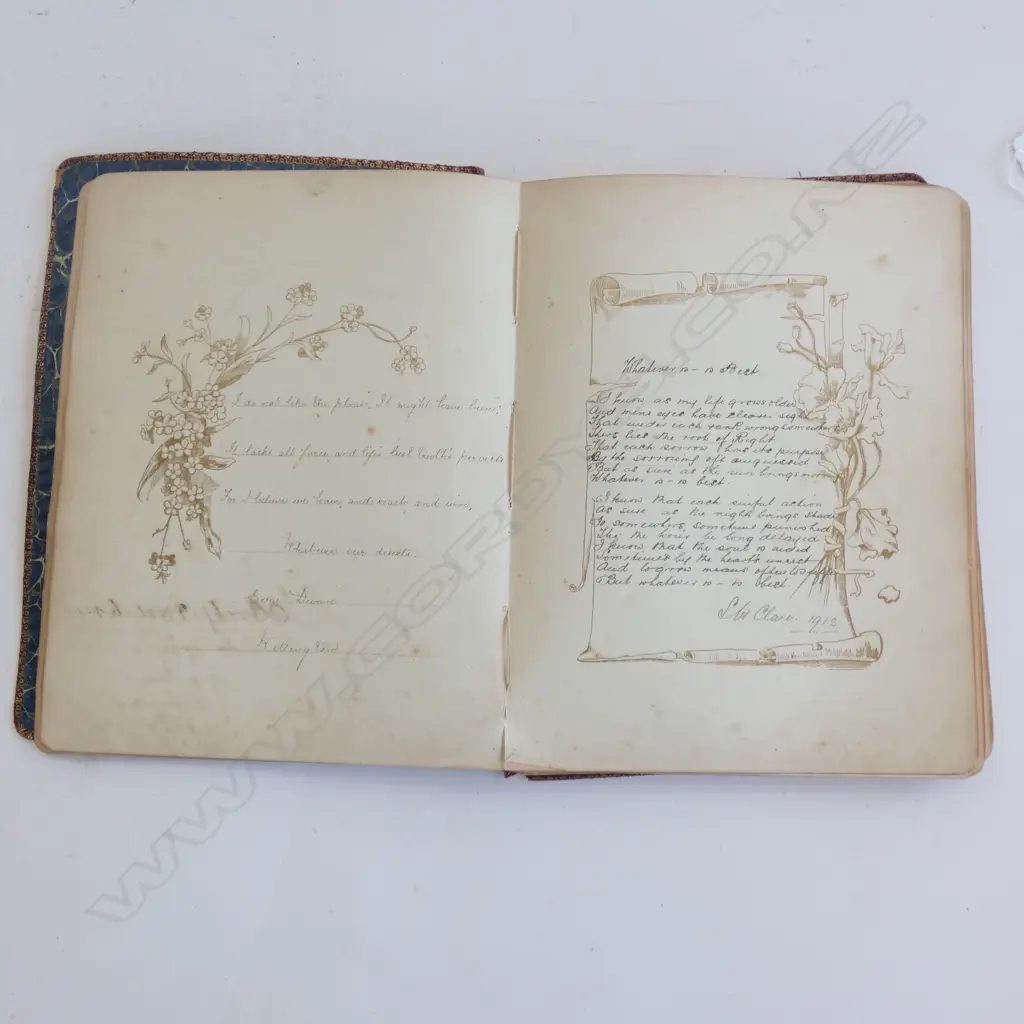 I do not like the phrase, "It might have been"
It lacks all force, and life's best truths perverts
For I believe we have, and reach, and win,
Whatever our deserts.
Whatever is - is Best.
I know as my life grows older
And mine eyes have clearer sight
That under each rank wrong somewhere
There lies the root of Right
That each sorrow has its purpose
By the sorrowing oft unguessed
But as sure as the sun brings morning
Whatever is - is best.
I know that each sinful action
As sure as the night brings shade
Is somewhere, sometime punished
Tho' the hour be long delayed
I know that the soul is aided
Sometimes by the heart's unrest
And to grow means often to suffer
But whatever is - is best.
1912
WWW.CORDYS.CO.NZ